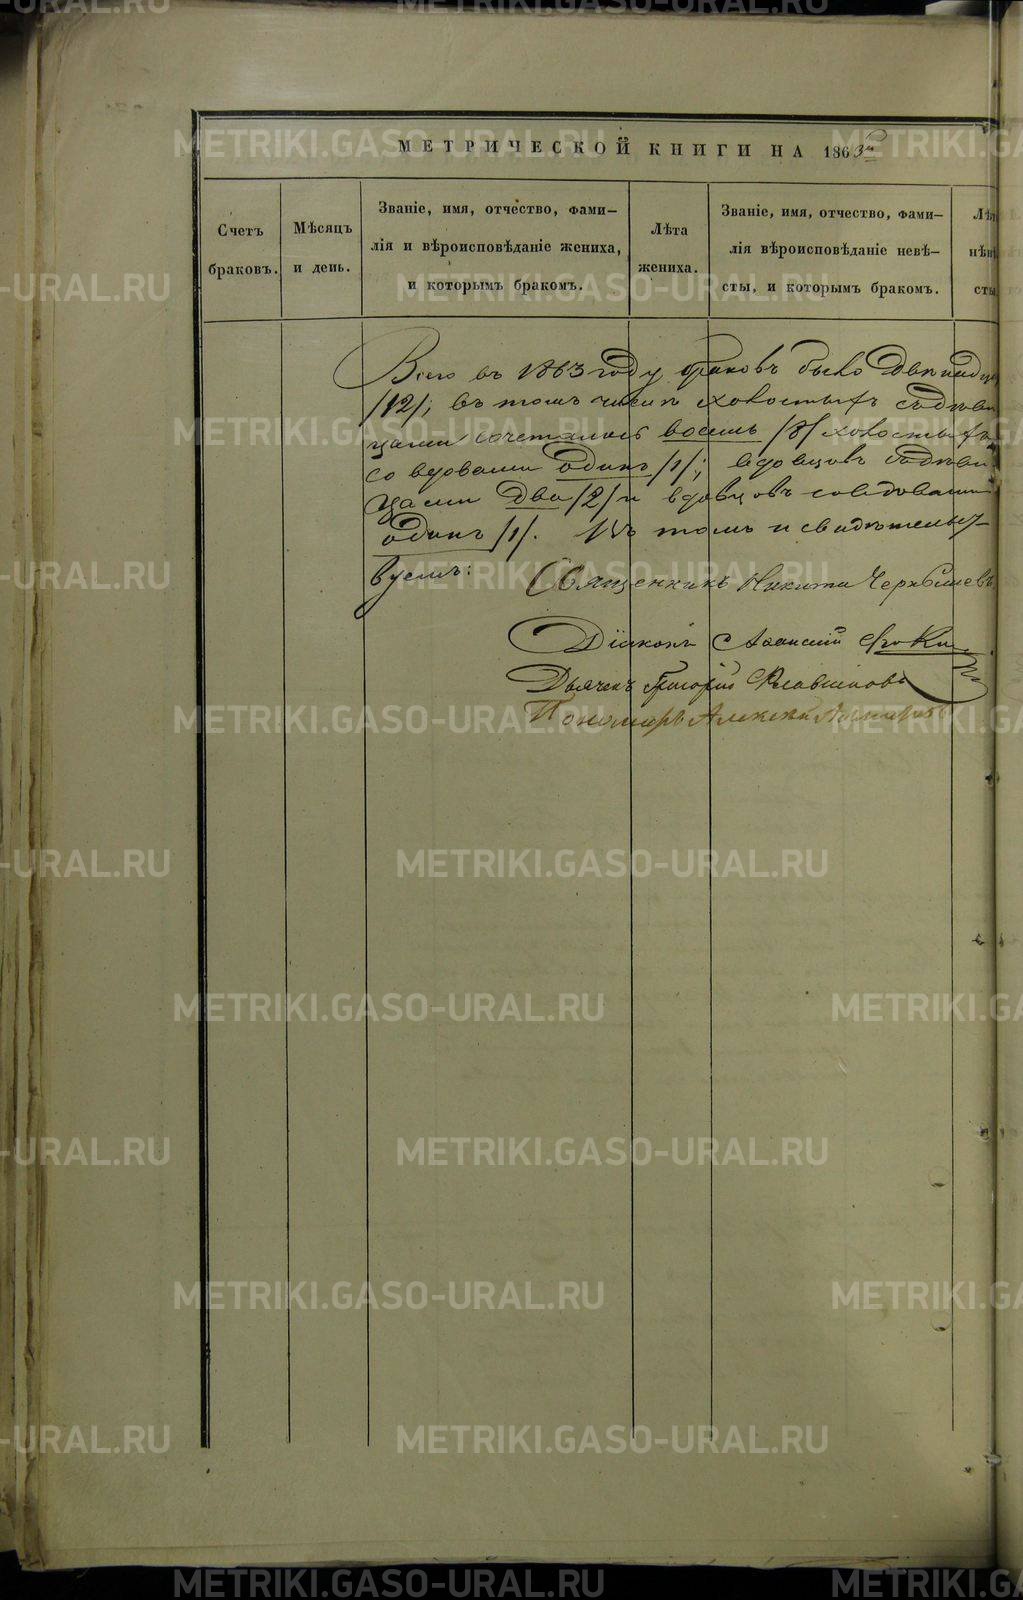 МЕТРИЧЕСКОЙ КНИГИ НА 1863й
Счетъ браковъ.
Мѣсяцъ и день.
Званіе, имя, отчество, фами-
лія и вѣроисповѣданіе жениха,
и которымъ бракомъ.
Лѣта
жениха.
Званіе, имя, отчество, фами-
лія вѣроисповѣданіе невѣ-
сты, и которымъ бракомъ.
Лѣт
нѣвѣ
сты
Всего въ 1863 году браковъ было двѣнадца
/12/; въ томъ числѣ холостыхъ съ дѣви
цами сочеталось восемь /8/ холостыхъ
со вдовами одинъ /1/; вдовцовъ съ дѣви
цами два /2/ и вдовцовъ со вдовами
одинъ /1/. Въ томъ и свидѣтельст
вуемъ:
Священникъ Никита
Діаконъ
Дьячекъ Григорій
Пономарь Алексѣй
METRIKI.GASO-URAL.RU